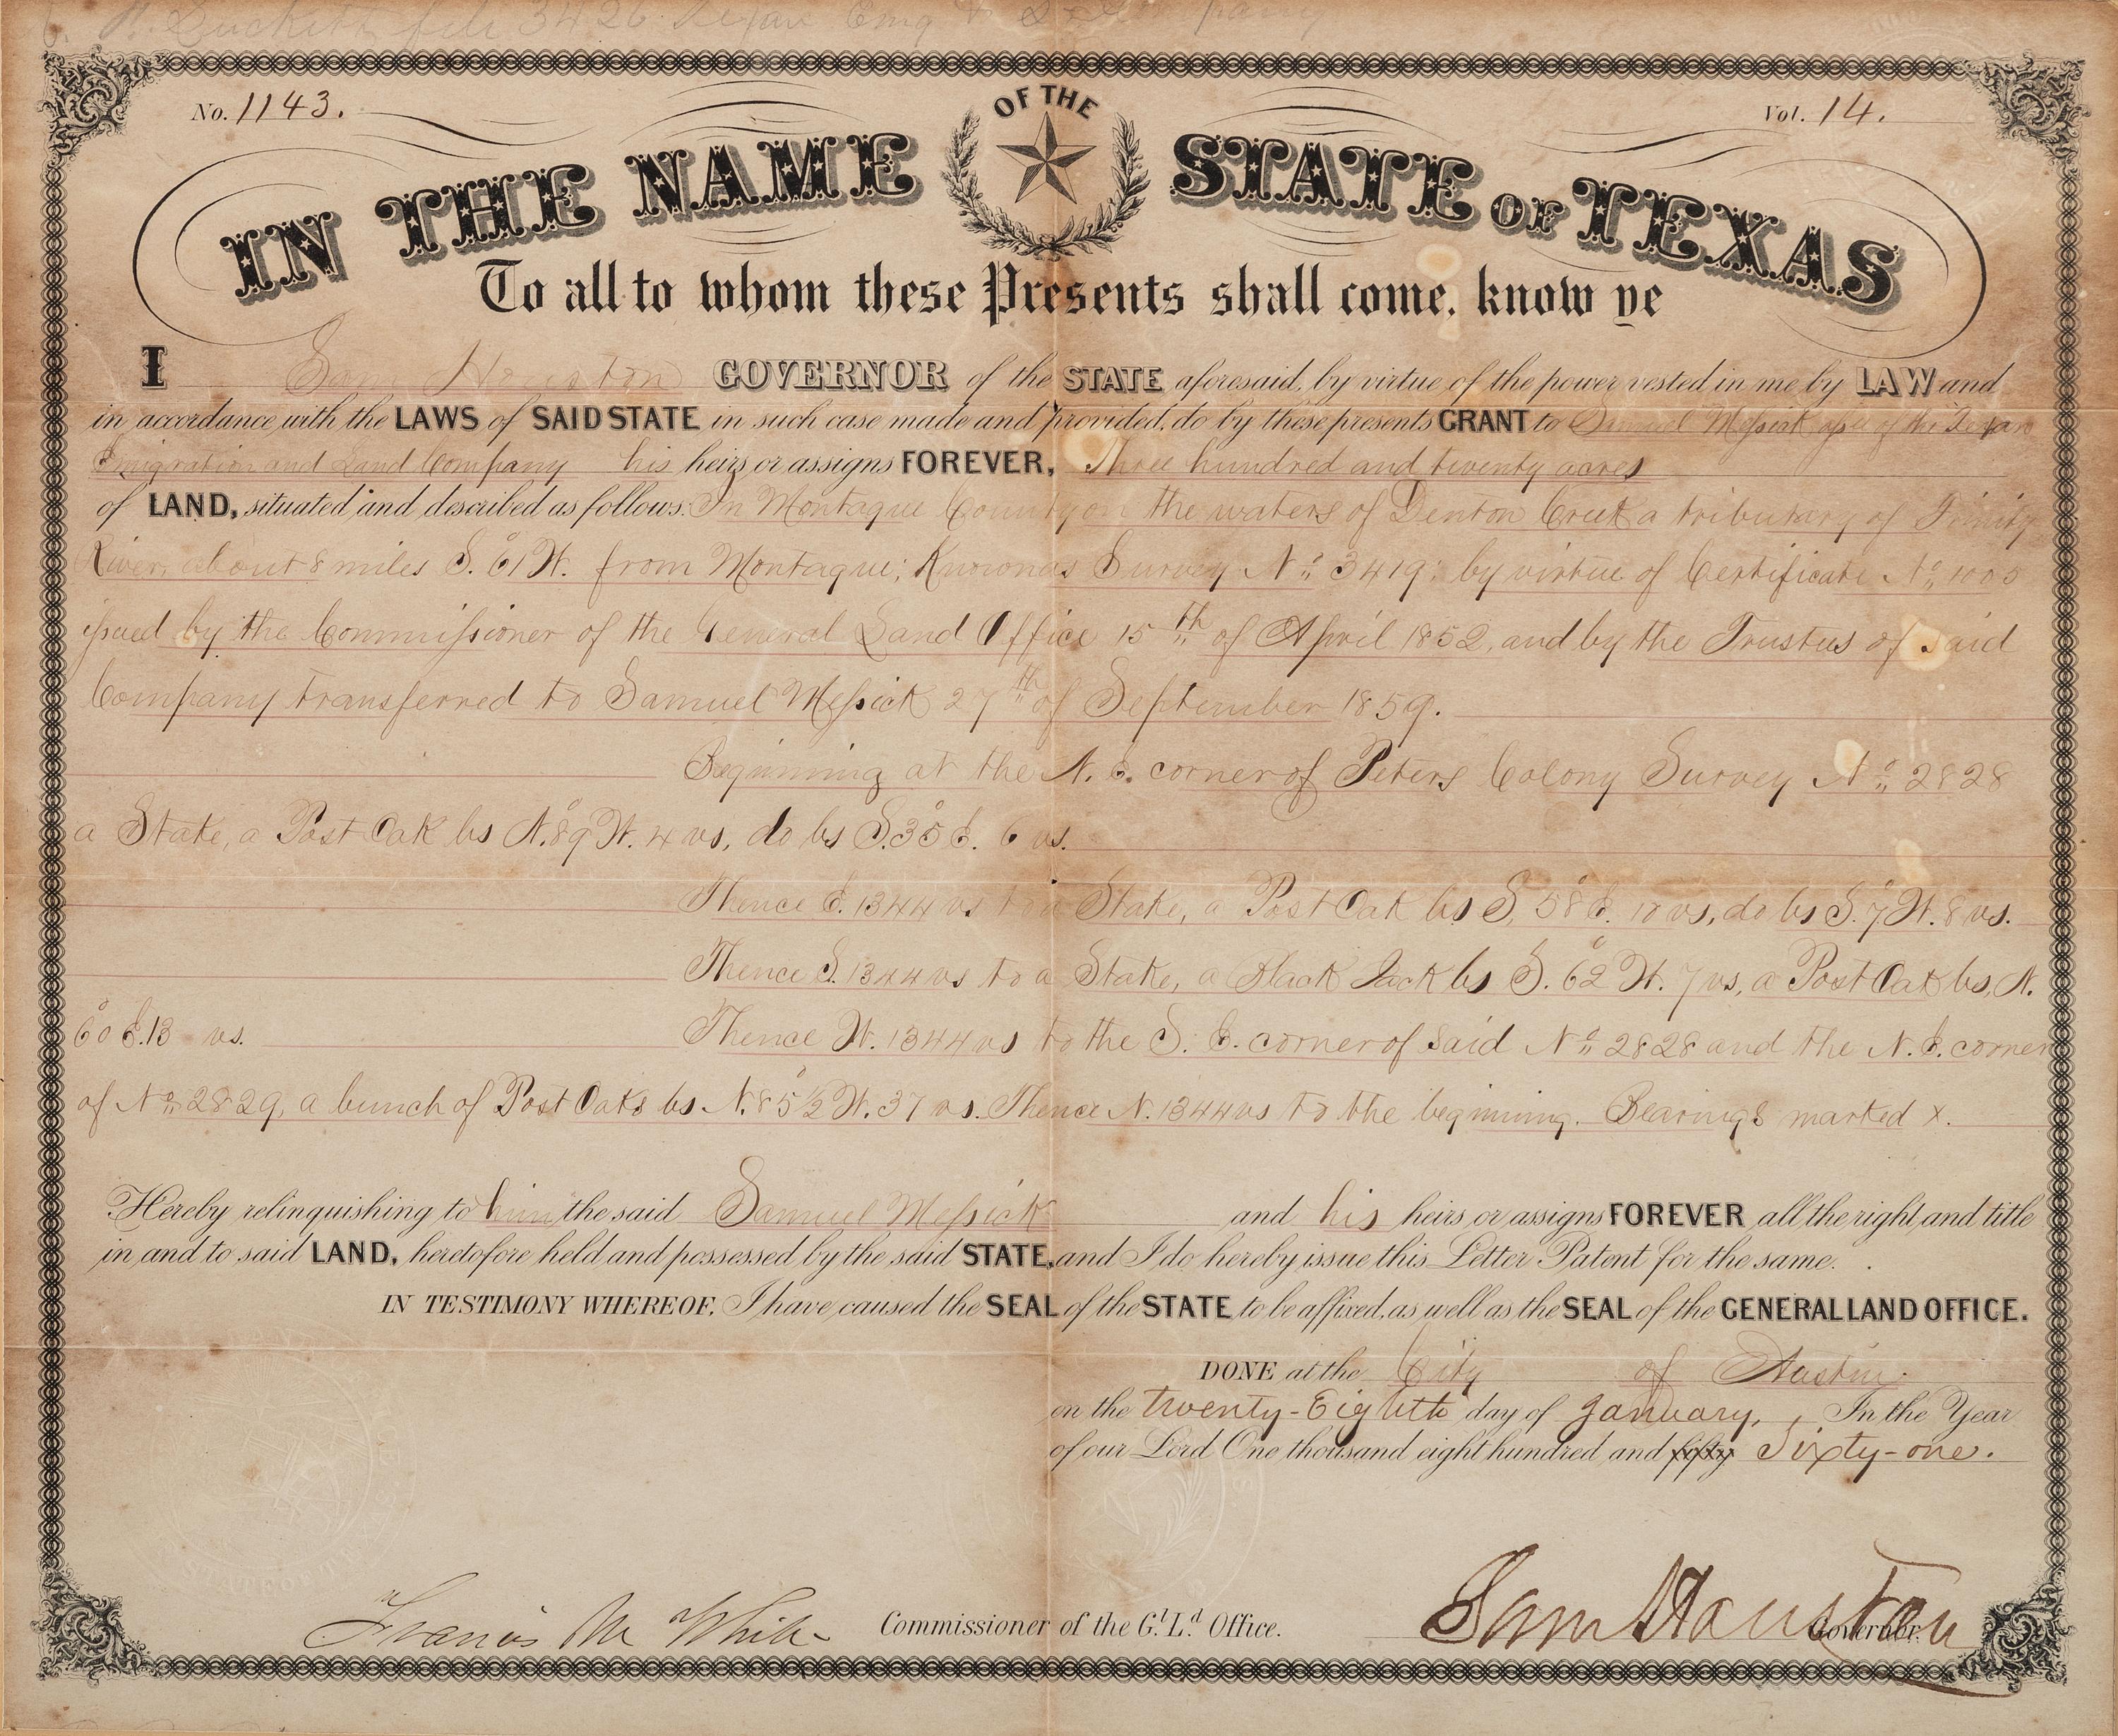 file 3426 Texan Emg & L Company
No. 1143. Vol. 14.
IN THE NAME OF THE STATE OF TEXAS
To all to whom these Presents shall come, know ye
I Sam Houston GOVERNOR of the STATE aforesaid, by virtue of the power vested in me by LAW and
in accordance with the LAWS of SAID STATE in such case made and provided, do by these presents GRANT to Samuel Messick assee of the Texan
Emigration and Land Company his heirs or assigns FOREVER, Three hundred and twenty acres
of LAND, situated and described as follows: In Montague County on the waters of Denton Creek a tributary of Trinity
River, about 8 miles S. 61° W. from Montague; Known as Survey No. 3419: by virtue of Certificate No. 1005
issued by the Commissioner of the General Land Office 15th of April 1852, and by the Trustees of said
Company transferred to Samuel Messick 27th of September 1859.
Beginning at the N. E. corner of Peters Colony Survey No. 2828
a Stake, a Post Oak bs N. 89° W. 4 vs, do bs S. 35° E. 6 vs.
Thence E. 1344 vs to a Stake, a Post Oak bs S. 58° E. 10 vs, do bs S. 7° W. 8 vs.
Thence S. 1344 vs to a Stake, a Black Jack bs S. 62° W. 7 vs, a Post Oak bs, N.
60° E. 13 vs. Thence W. 1344 vs to the S. E. corner of said No. 2828 and the N. E. corner
of No. 2829, a bunch of Post Oaks bs N. 85 1/2° W. 37 vs. Thence N. 1344 vs to the beginning. Bearings marked X.
Hereby relinquishing to him the said Samuel Messick and his heirs or assigns FOREVER all the right and title
in and to said LAND, heretofore held and possessed by the said STATE, and I do hereby issue this Letter Patent for the same.
IN TESTIMONY WHEREOF, I have caused the SEAL of the STATE to be affixed, as well as the SEAL of the GENERAL LAND OFFICE.
DONE at the City of Austin.
on the twenty-Eighth day of January, In the Year
of our Lord One thousand eight hundred and fifty Sixty-one.
Francis M White Commissioner of the G.l L.d Office. Sam Houston Governor.
STATE OF TEXAS